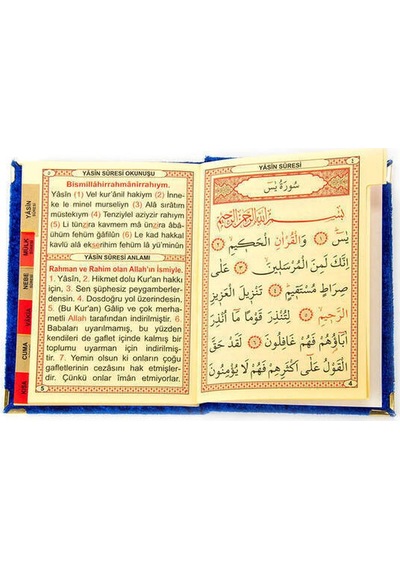 YÂSİN SÛRESİ
سُورَةُ يٰسٓ
بِسْمِ اللّٰهِ الرَّحْمٰنِ الرَّحِيمِ
يٰسٓ ﴿١﴾ وَالْقُرْاٰنِ الْحَكِيمِ ﴿٢﴾
اِنَّكَ لَمِنَ الْمُرْسَلِينَ ﴿٣﴾ عَلٰى
صِرَاطٍ مُسْتَقِيمٍ ﴿٤﴾ تَنْزِيلَ الْعَزِيزِ
الرَّحِيمِ ﴿٥﴾ لِتُنْذِرَ قَوْمًا مَٓا اُنْذِرَ
اٰبَٓاؤُ۬هُمْ فَهُمْ غَافِلُونَ ﴿٦﴾ لَقَدْ حَقَّ
الْقَوْلُ عَلٰٓى اَكْثَرِهِمْ فَهُمْ لَا يُؤْمِنُونَ
4
YÂSİN SÛRESİ OKUNUŞU
Bismillâhirrahmânirrahıym.
Yâsîn (1) Vel kur'ânil hakiym (2) İnne-
ke le minel murseliyn (3) Alâ sırâtım
müstekıym (4) Tenziylel aziyzir rahıym
(5) Li tünzira kavmem mâ ünzira âbâ-
ühüm fehüm ğâfilûn (6) Le kad hakkal
kavlü alâ ekserihim fehüm lâ yü'minûn
YÂSİN SÛRESİ ANLAMI
Rahman ve Rahim olan Allah'ın İsmiyle.
1. Yâsîn, 2. Hikmet dolu Kur'an hakkı
için, 3. Sen şüphesiz peygamberler-
densin. 4. Dosdoğru yol üzerindesin.
5. (Bu Kur'an) Gâlip ve çok merha-
metli Allah tarafından indirilmiştir. 6.
Babaları uyarılmamış, bu yüzden
kendileri de gaflet içinde kalmış bir
toplumu uyarman için indirilmiş-
tir. 7. Yemin olsun ki onların çoğu
gafletlerinin cezasını hak etmişler-
dir. Çünkü onlar îman etmiyorlar.
5
YÂSİN
MÜLK
NEBE
CUMA